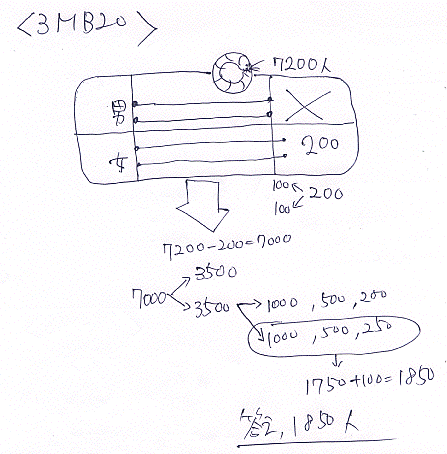 <3MB20>
7200人
男
女 200
100
200
100
7200-200=7000
3500
7000
3500 1000, 500, 250
1000, 500, 250
1750+100=1850
答え, 1850人